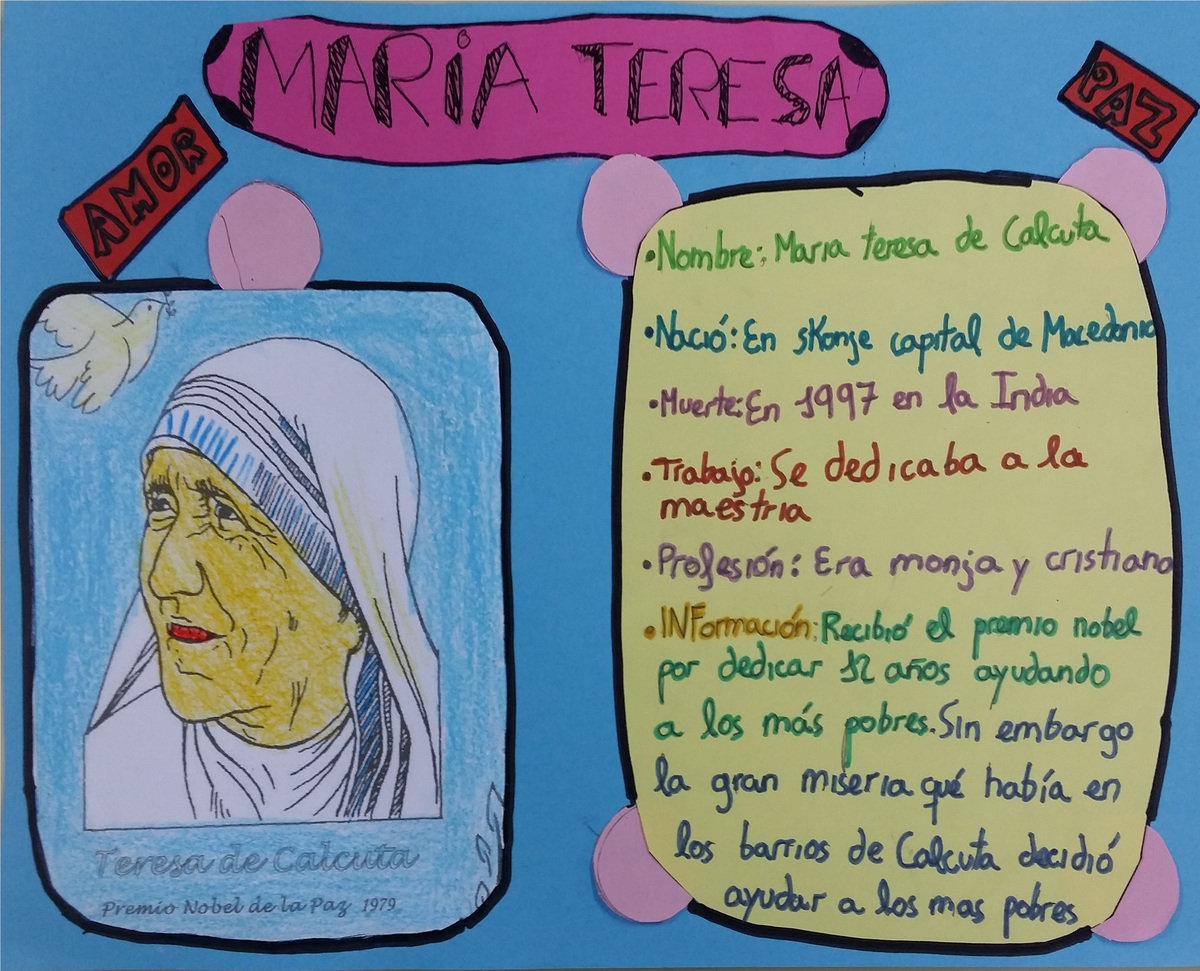 MARíA TERESA
AMOR
PAZ
Teresa de Calcuta
Premio Nobel de la Paz 1979
•Nombre: Maria teresa de Calcuta
•Nació: En sKonje capital de Macedonia
•Muerte: En 1997 en la India
•Trabajo: Se dedicaba a la
maestria
•Profesión: Era monja y cristiana
•INFormación: Recibió el premio nobel
por dedicar 12 años ayudando
a los más pobres. Sin embargo
la gran miseria qué había en
los barrios de Calcuta decidió
ayudar a los mas pobres